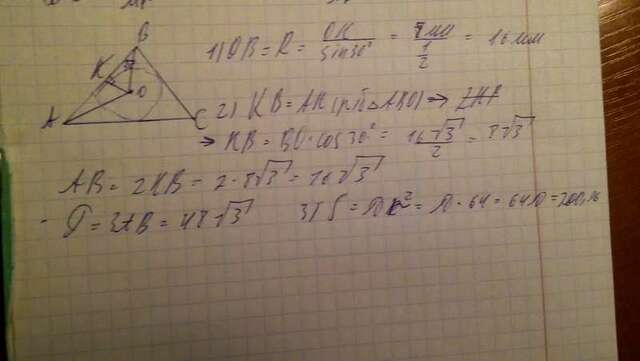 B
K
O
A
C
1) OB = R = OK / sin 30° = 8 мм / 1/2 = 16 мм
2) KB = AK (р/б △ABO) ⇒
⇒ KB = BO · cos 30° = 16√3 / 2 = 8√3
AB = 2KB = 2 · 8√3 = 16√3
P = 3AB = 48√3
3) S = πr² = π · 64 = 64π = 200,96